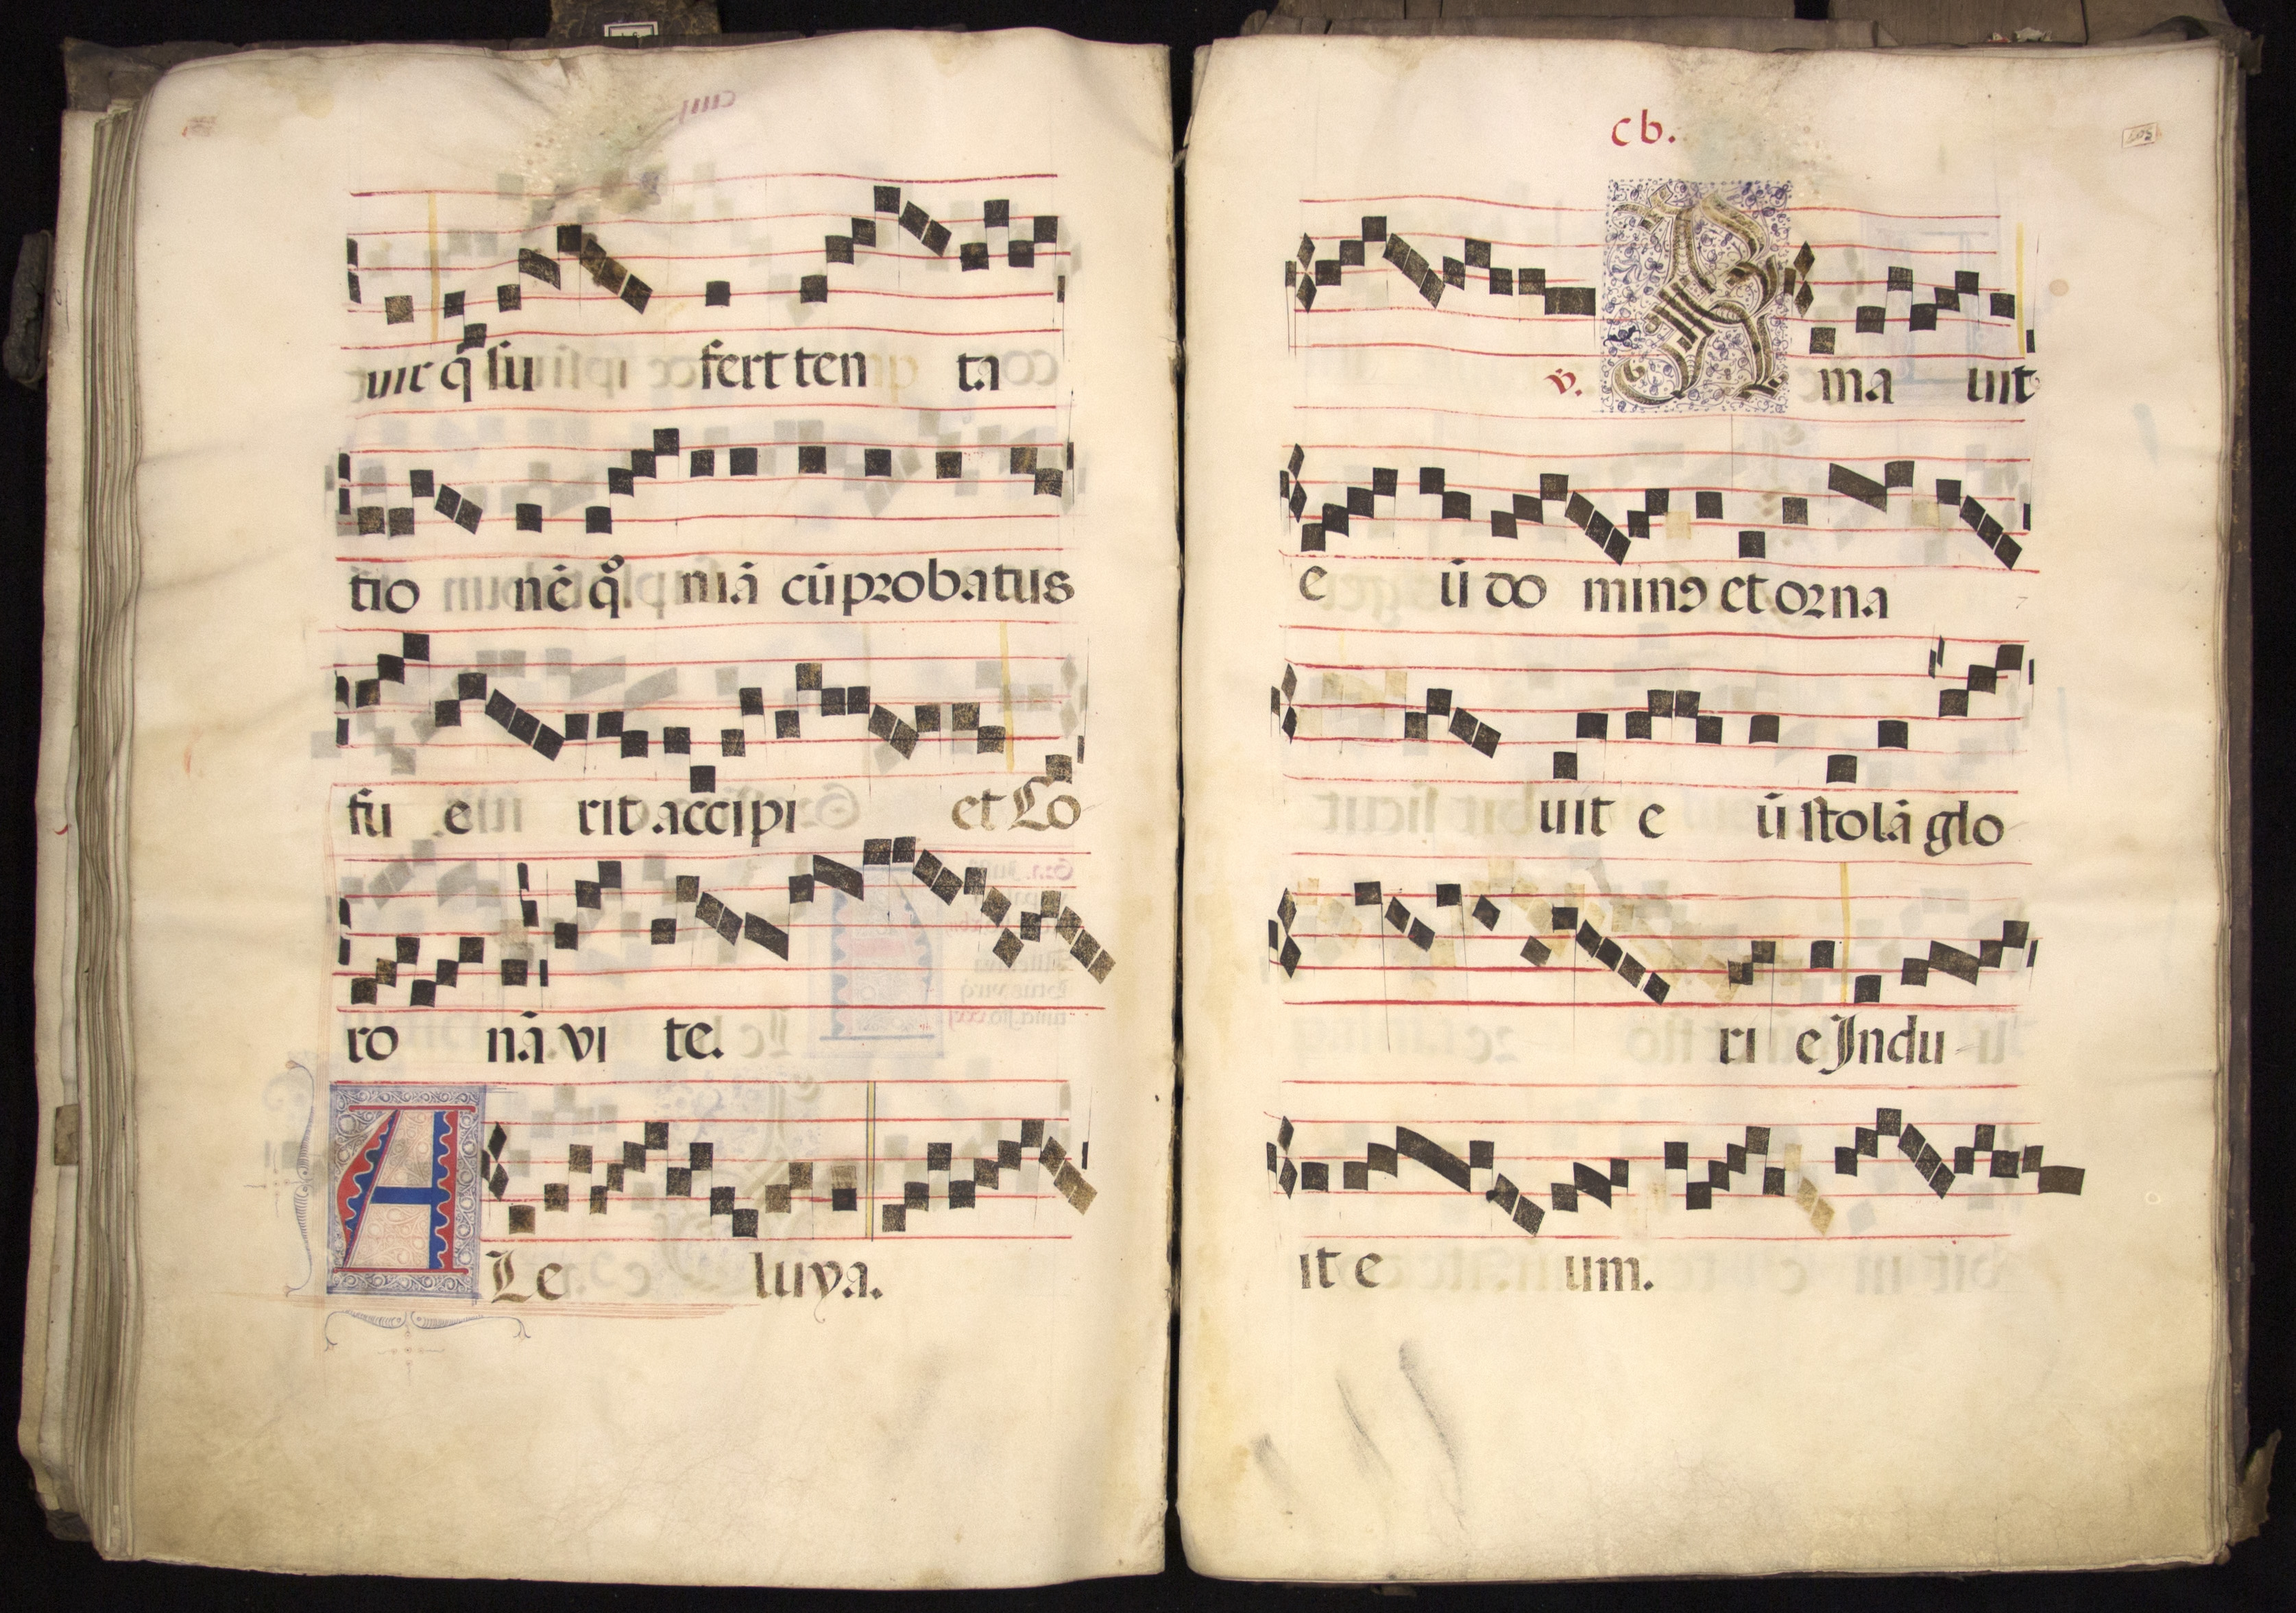 uir q̃ ſu fert ten ta
tio nē q̃o niã cū probatus
fu e rit accipi et Co
ro nã vi te.
A Le luya.
cb.
v̄. A ma uit
e ū do minꝯ et orna
uit e ū ſtolã glo
ri e Indu
it e um.